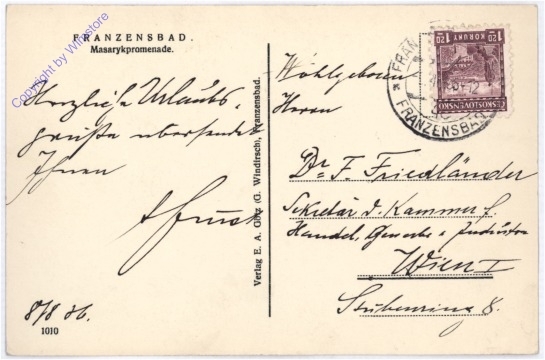 FRANZENSBAD.
Masarykpromenade.
Copyright by Winstore
Herzliche Urlaubs-
grüße übersendet
Ihnen
8/8 36.
1010
Verlag E. A. Götz (G. Windirsch), Franzensbad.
KORUNY
1·20 1·20
ČESKOSLOVENSKO
FRANZENSBAD
Wohlgeboren
Herrn
Dr. F. Friedländer
Sekretär d. Kammer f.
Handel, Gewerbe & Industrie
Wien I
Stubenring 8.